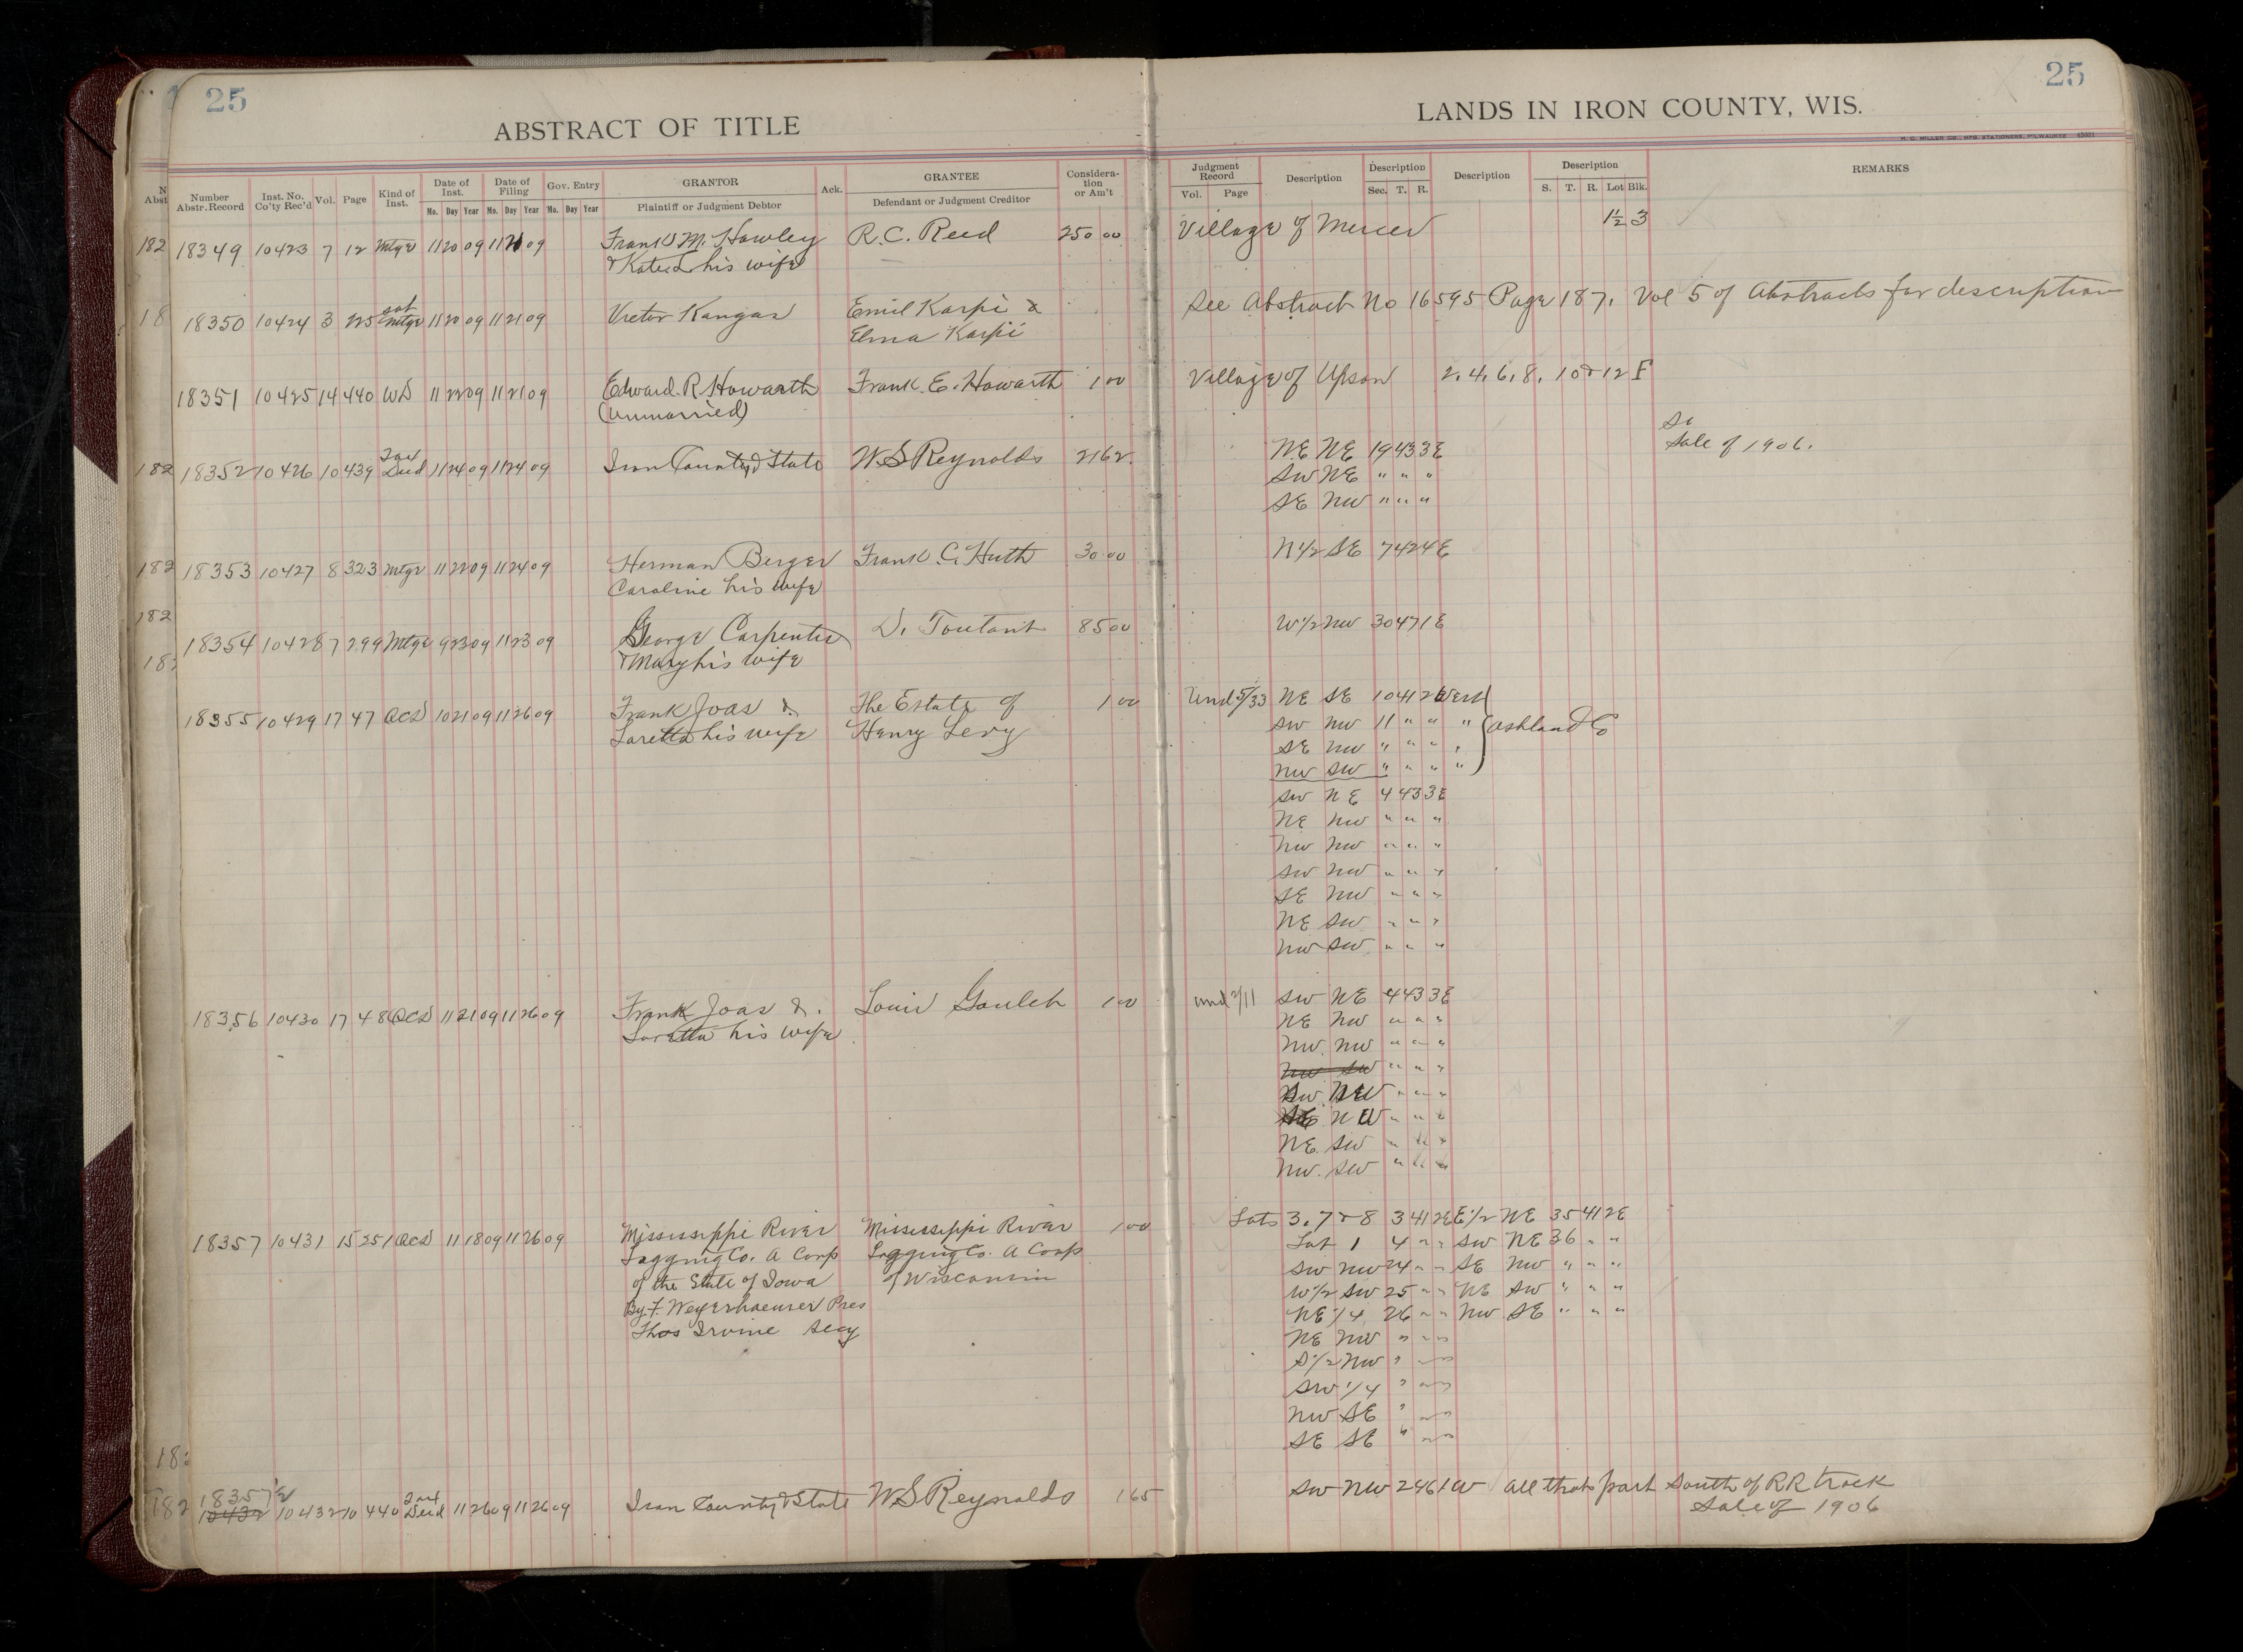 25
25
ABSTRACT OF TITLE
LANDS IN IRON COUNTY, WIS.
H. C. MILLER CO., MFG. STATIONERS, MILWAUKEE
Number Abstr. Record
Inst. No. Co'ty Rec'd
Vol.
Page
Kind of Inst.
Date of Inst.
Mo. Day Year
Date of Filing
Mo. Day Year
Gov. Entry
Mo. Day Year
GRANTOR
Plaintiff or Judgment Debtor
Ack.
GRANTEE
Defendant or Judgment Creditor
Considera-tion or Am't
Judgment Record
Vol. Page
Description
Description
Sec. T. R.
Description
Description
S. T. R. Lot Blk.
REMARKS
18349 10423 7 12 Mtge 11 20 09 11 21 09 Frank M. Hawley R.C. Reed 250 00 Village of Mercer 1½ 3
his wife
18350 10424 3 225 sat Mtge 11 20 09 11 21 09 Victor Kangas Emil Karpi & See Abstract No 16595 Page 187. Vol 5 of Abstracts for description
Elma Karpi
18351 10425 14 440 WD 11 22 09 11 21 09 Edward R Howarth Frank E. Howarth 1 00 Village of Upson 2. 4. 6. 8. 10 & 12 F
(unmarried)
18352 10426 10 439 Tax Deed 11 24 09 11 24 09 Iron County & State W.S Reynolds 21 62 NE NE 19 43 3E Sale of 1906.
SW NE " " "
SE NW " " "
18353 10427 8 323 Mtge 11 22 09 11 24 09 Herman Berger Frank C. Huth 30 00 N1/2 SE 7 42 4E
Caroline his wife
18354 10428 7 299 Mtge 9 23 09 11 23 09 George Carpenter D. Toutant 85 00 W1/2 NW 30 47 1E
& Mary his wife
18355 10429 17 47 QCD 10 21 09 11 26 09 Frank Joas & The Estate of 1 00 Und 5/33 NE SE 10 41 2 West
Loretta his wife Henry Levy SW NW 11 " " " Ashland Co
SE NW " " " "
NW SW " " " "
SW NE 4 43 3E
NE NW " " "
NW NW " " "
SW NW " " "
SE NW " " "
NE SW " " "
NW SW " " "
18356 10430 17 48 QCD 11 21 09 11 26 09 Frank Joas & Louis 1 00 und 2/11 SW NE 4 43 3E
Loretta his wife NE NW " " "
NW. NW " " "
NW SW " " "
SW. NW " " "
SE NW " " "
NE. SW " " "
NW. SW " " "
18357 10431 15 251 QCD 11 18 09 11 26 09 Mississippi River Mississippi River 1 00 Lots 3. 7 & 8 3 41 2E E1/2 NE 35 41 2E
Logging Co. A Corp Logging Co. A Corp Lot 1 4 " " SW NE 36 " "
of the State of Iowa of Wisconsin SW NW 24 " " SE NW " " "
By F. Weyerhaeuser Pres W1/2 SW 25 " " NE SW " " "
Thos Irvine Secy NE 1/4 26 " " NW SE " " "
NE NW " " "
S1/2 NW " " "
SW 1/4 " " "
NW SE " " "
SE SE " " "
18357½
10432 10432 10 440 Tax Deed 11 26 09 11 26 09 Iron County & State W.S Reynolds 1 65 SW NW 2 46 1W All that part South of RR track
Sale of 1906